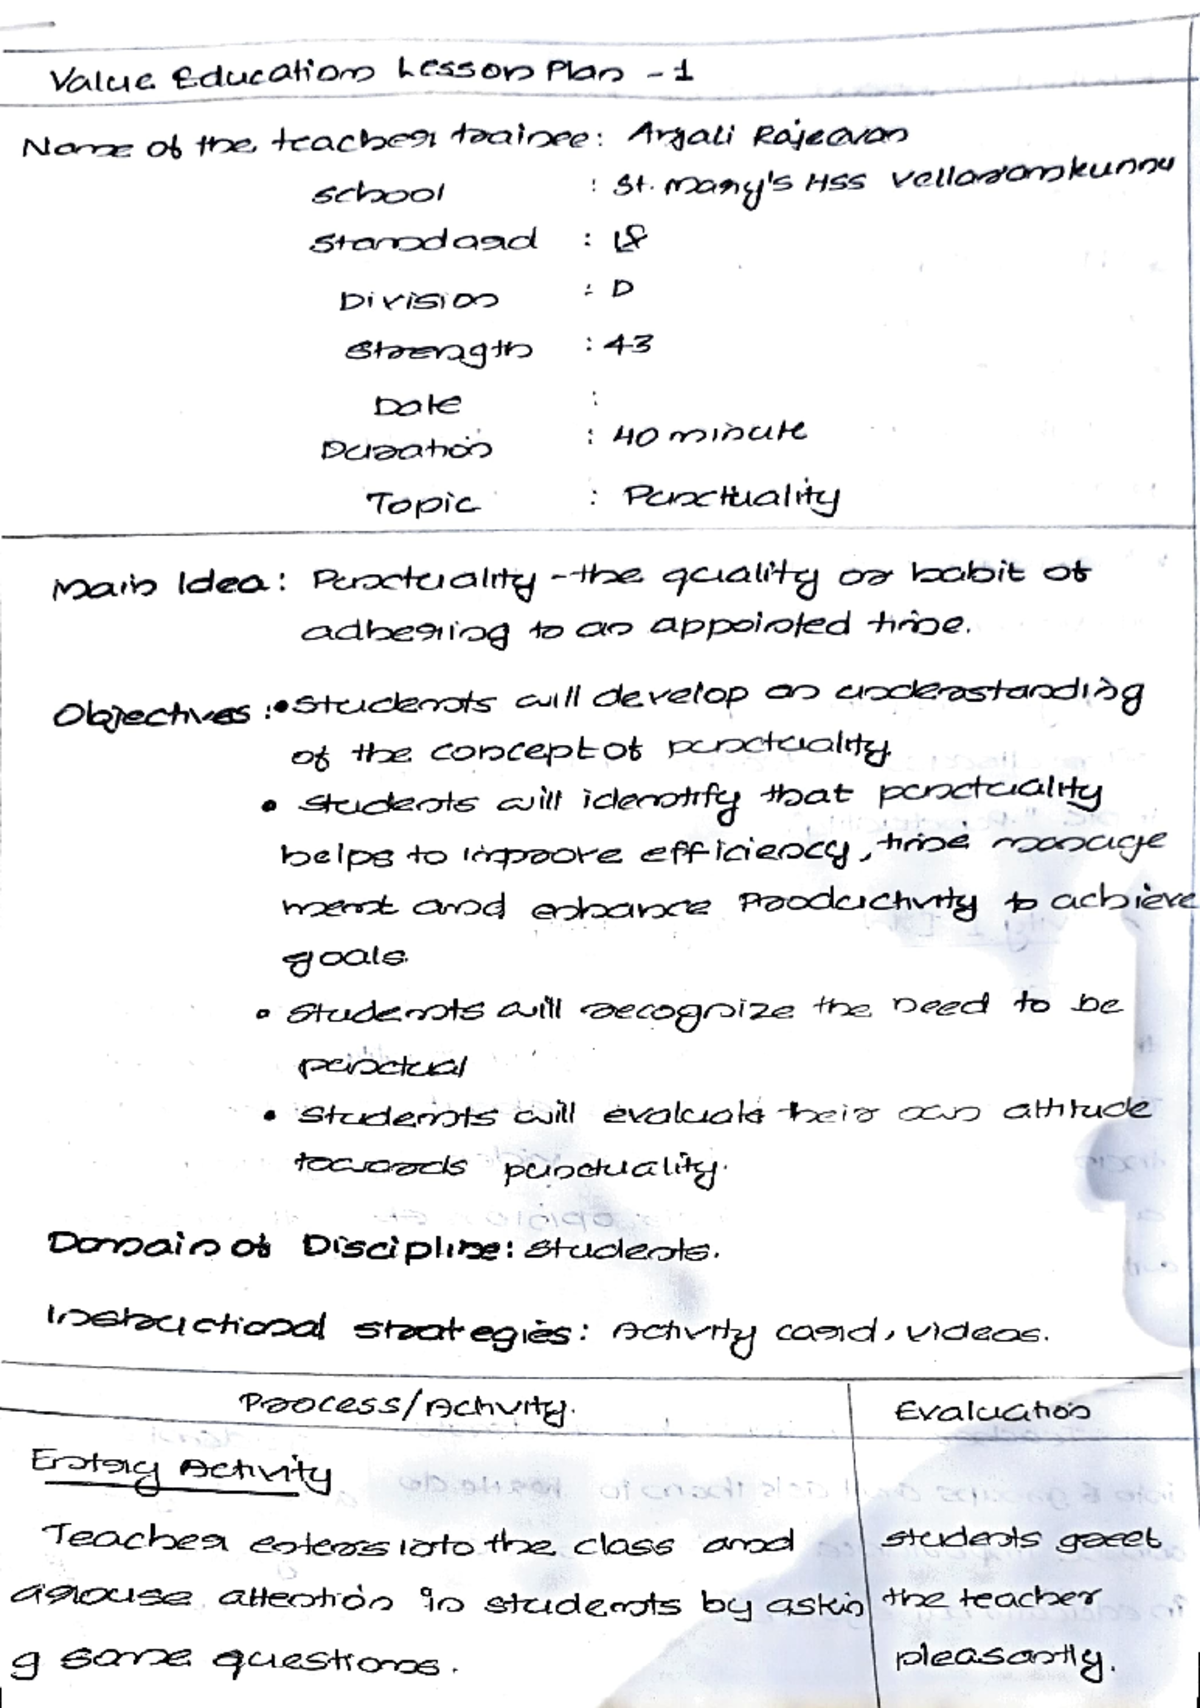 Value Education Lesson Plan - 1
Name of the teacher trainee: Anjali Rajeevan
School : St. Mary's HSS Vellaramkunnu
Standard :
Division : D
Strength : 43
Date :
Duration : 40 minute
Topic : Punctuality
Main Idea: Punctuality - the quality or habit of
adhering to an appointed time.
Objectives: • Students will develop an understanding
of the concept of punctuality.
• Students will identify that punctuality
helps to improve efficiency, time manage
ment and enhance Productivity to achieve
goals.
• Students will recognize the need to be
punctual
• Students will evaluate their own attitude
towards punctuality.
Domain of Discipline: Students.
Instructional strategies: Activity card, videos.
Process/Activity. Evaluation
Entry Activity
Teacher enters into the class and students greet
arouse attention in students by askin the teacher
g some questions. pleasantly.